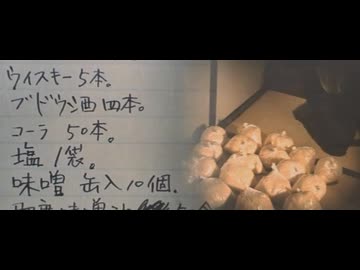 ウイスキー 5本。
ブドウ酒 四本。
コーラ 50本。
塩 1袋。
味噌 缶入10個.